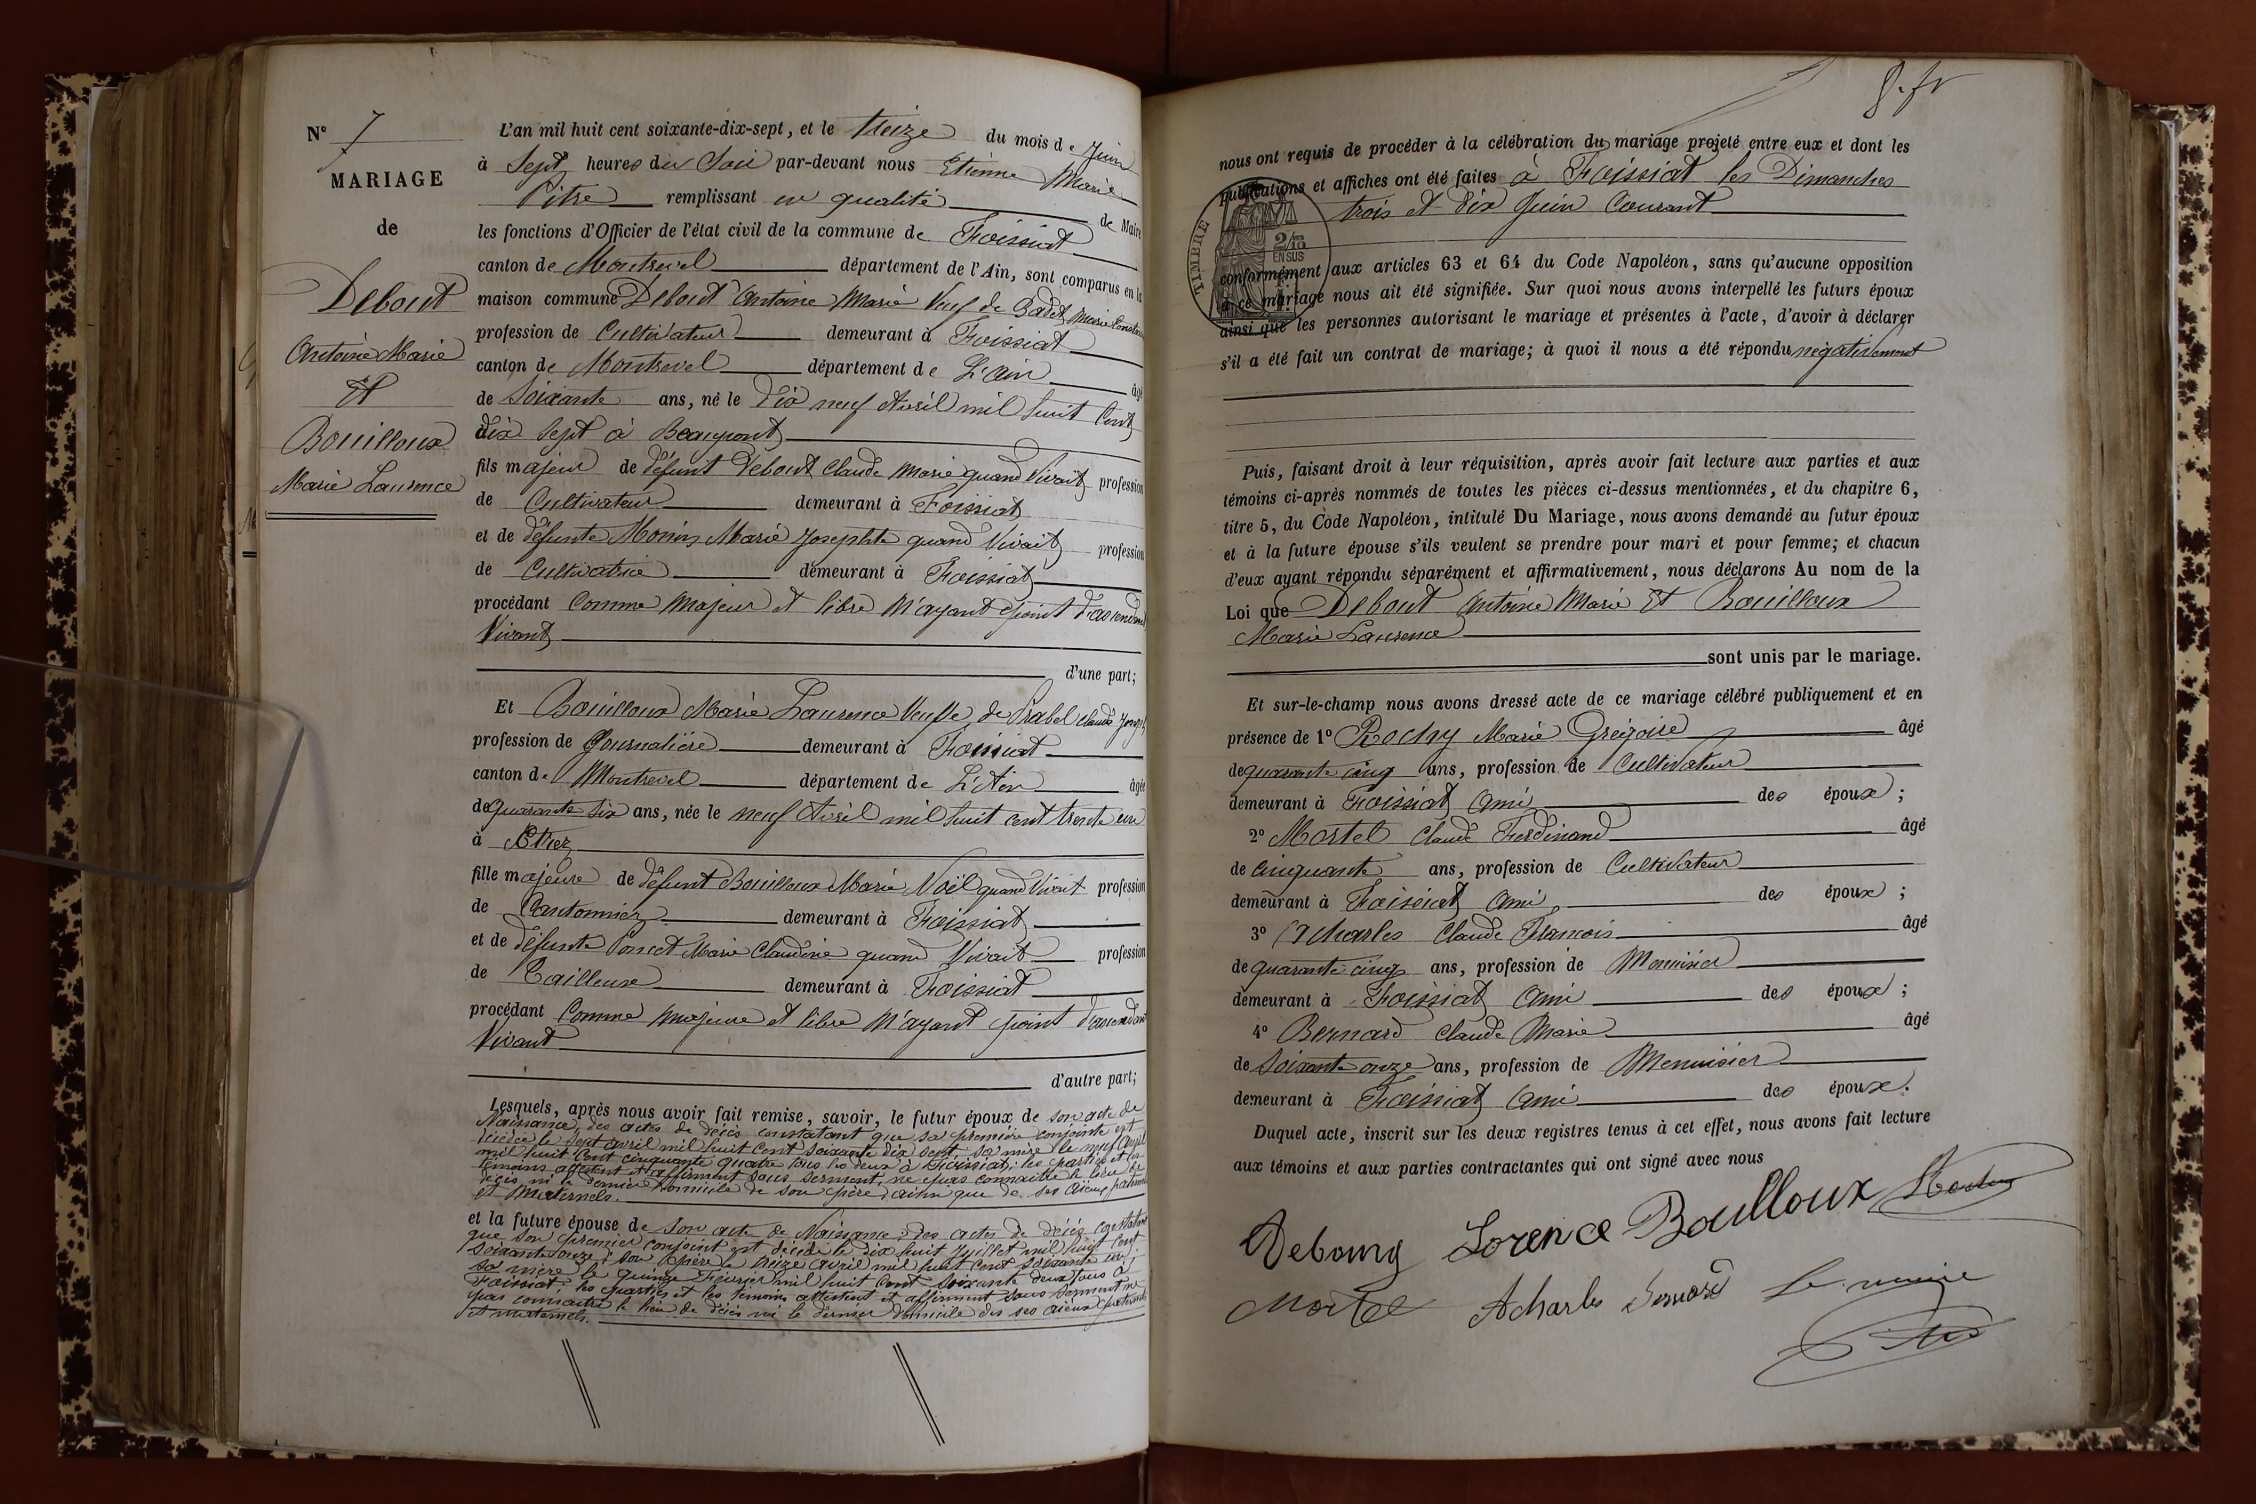 N° 7
MARIAGE
de
Debout
Antoine Marie
Et
Bouilloux
Marie Laurence
L'an mil huit cent soixante-dix-sept, et le treize du mois de Juin
à Sept heures du Soir par-devant nous Etienne Marie
Pitre remplissant en qualité de Maire
les fonctions d'Officier de l'état civil de la commune de Foissiat
canton de Montrevel département de l'Ain, sont comparus en la
maison commune Debout Antoine Marie Veuf de Badet Marie
profession de Cultivateur demeurant à Foissiat
canton de Montrevel département de L'Ain âgé
de Soixante ans, né le dix neuf Avril mil huit Cent
dix Sept à Beaupont
fils majeur de défunt Debout Claude Marie quand Vivait profession
de Cultivateur demeurant à Foissiat
et de défunte Monin Marie Josephte quand Vivait profession
de Cultivatrice demeurant à Foissiat
procédant Comme Majeur et libre N'ayant point d'ascendant
Vivant
d'une part;
Et Bouilloux Marie Laurence Veuve de Prabel Claude Joseph
profession de Journalière demeurant à Foissiat
canton de Montrevel département de L'Ain âgée
de quarante Six ans, née le neuf Avril mil huit cent trente un
à
fille majeure de défunt Bouilloux Marie Noël quand Vivait profession
de Cantonnier demeurant à Foissiat
et de défunte Poncet Marie Claudine quand Vivait profession
de Tailleuse demeurant à Foissiat
procédant Comme majeure et libre N'ayant point d'ascendant
Vivant
d'autre part;
Lesquels, après nous avoir fait remise, savoir, le futur époux de son acte de
Naissance, des actes de décès constatant que sa première conjointe est
décédée le sept avril mil huit Cent Soixante dix Sept, sa mère le neuf Avril
mil huit Cent cinquante quatre tous les deux à Foissiat; les parties et les
témoins attestent et affirment sous serment, ne pas connaître le lieu de
décès ni le dernier domicile de son père ainsi que de ses aïeux paternels
et Maternels.
et la future épouse de Son acte de Naissance; des actes de décès constatant
que son premier conjoint est décédé le dix huit Juillet mil huit Cent
soixante onze; son père le treize avril mil huit cent soixante un;
sa mère le quinze Février mil huit Cent Soixante deux tous à
Foissiat; les parties et les témoins attestent et affirment sous serment ne
pas connaître le lieu de décès ni le dernier domicile des ses aïeux paternels
et maternels.
8. fr
nous ont requis de procéder à la célébration du mariage projeté entre eux et dont les
publications et affiches ont été faites à Foissiat les Dimanches
trois et dix Juin Courant
TIMBRE
2/10
EN SUS
conformément aux articles 63 et 64 du Code Napoléon, sans qu'aucune opposition
à ce mariage nous ait été signifiée. Sur quoi nous avons interpellé les futurs époux
ainsi que les personnes autorisant le mariage et présentes à l'acte, d'avoir à déclarer
s'il a été fait un contrat de mariage; à quoi il nous a été répondu négativement
Puis, faisant droit à leur réquisition, après avoir fait lecture aux parties et aux
témoins ci-après nommés de toutes les pièces ci-dessus mentionnées, et du chapitre 6,
titre 5, du Code Napoléon, intitulé Du Mariage, nous avons demandé au futur époux
et à la future épouse s'ils veulent se prendre pour mari et pour femme; et chacun
d'eux ayant répondu séparément et affirmativement, nous déclarons Au nom de la
Loi que Debout Antoine Marie Et Bouilloux
Marie Laurence
sont unis par le mariage.
Et sur-le-champ nous avons dressé acte de ce mariage célébré publiquement et en
présence de 1° Rochy Marie Grégoire âgé
de quarante cinq ans, profession de Cultivateur
demeurant à Foissiat Ami des époux;
2° Mortel Claude Ferdinand âgé
de Cinquante ans, profession de Cultivateur
demeurant à Foissiat Ami des époux;
3° Acharles Claude François âgé
de quarante cinq ans, profession de Menuisier
demeurant à Foissiat Ami des époux;
4° Bernard Claude Marie âgé
de Soixante onze ans, profession de Menuisier
demeurant à Foissiat Ami des époux.
Duquel acte, inscrit sur les deux registres tenus à cet effet, nous avons fait lecture
aux témoins et aux parties contractantes qui ont signé avec nous
Debourg Lorence Boulloux
Mortel Acharles Bernard Le maire